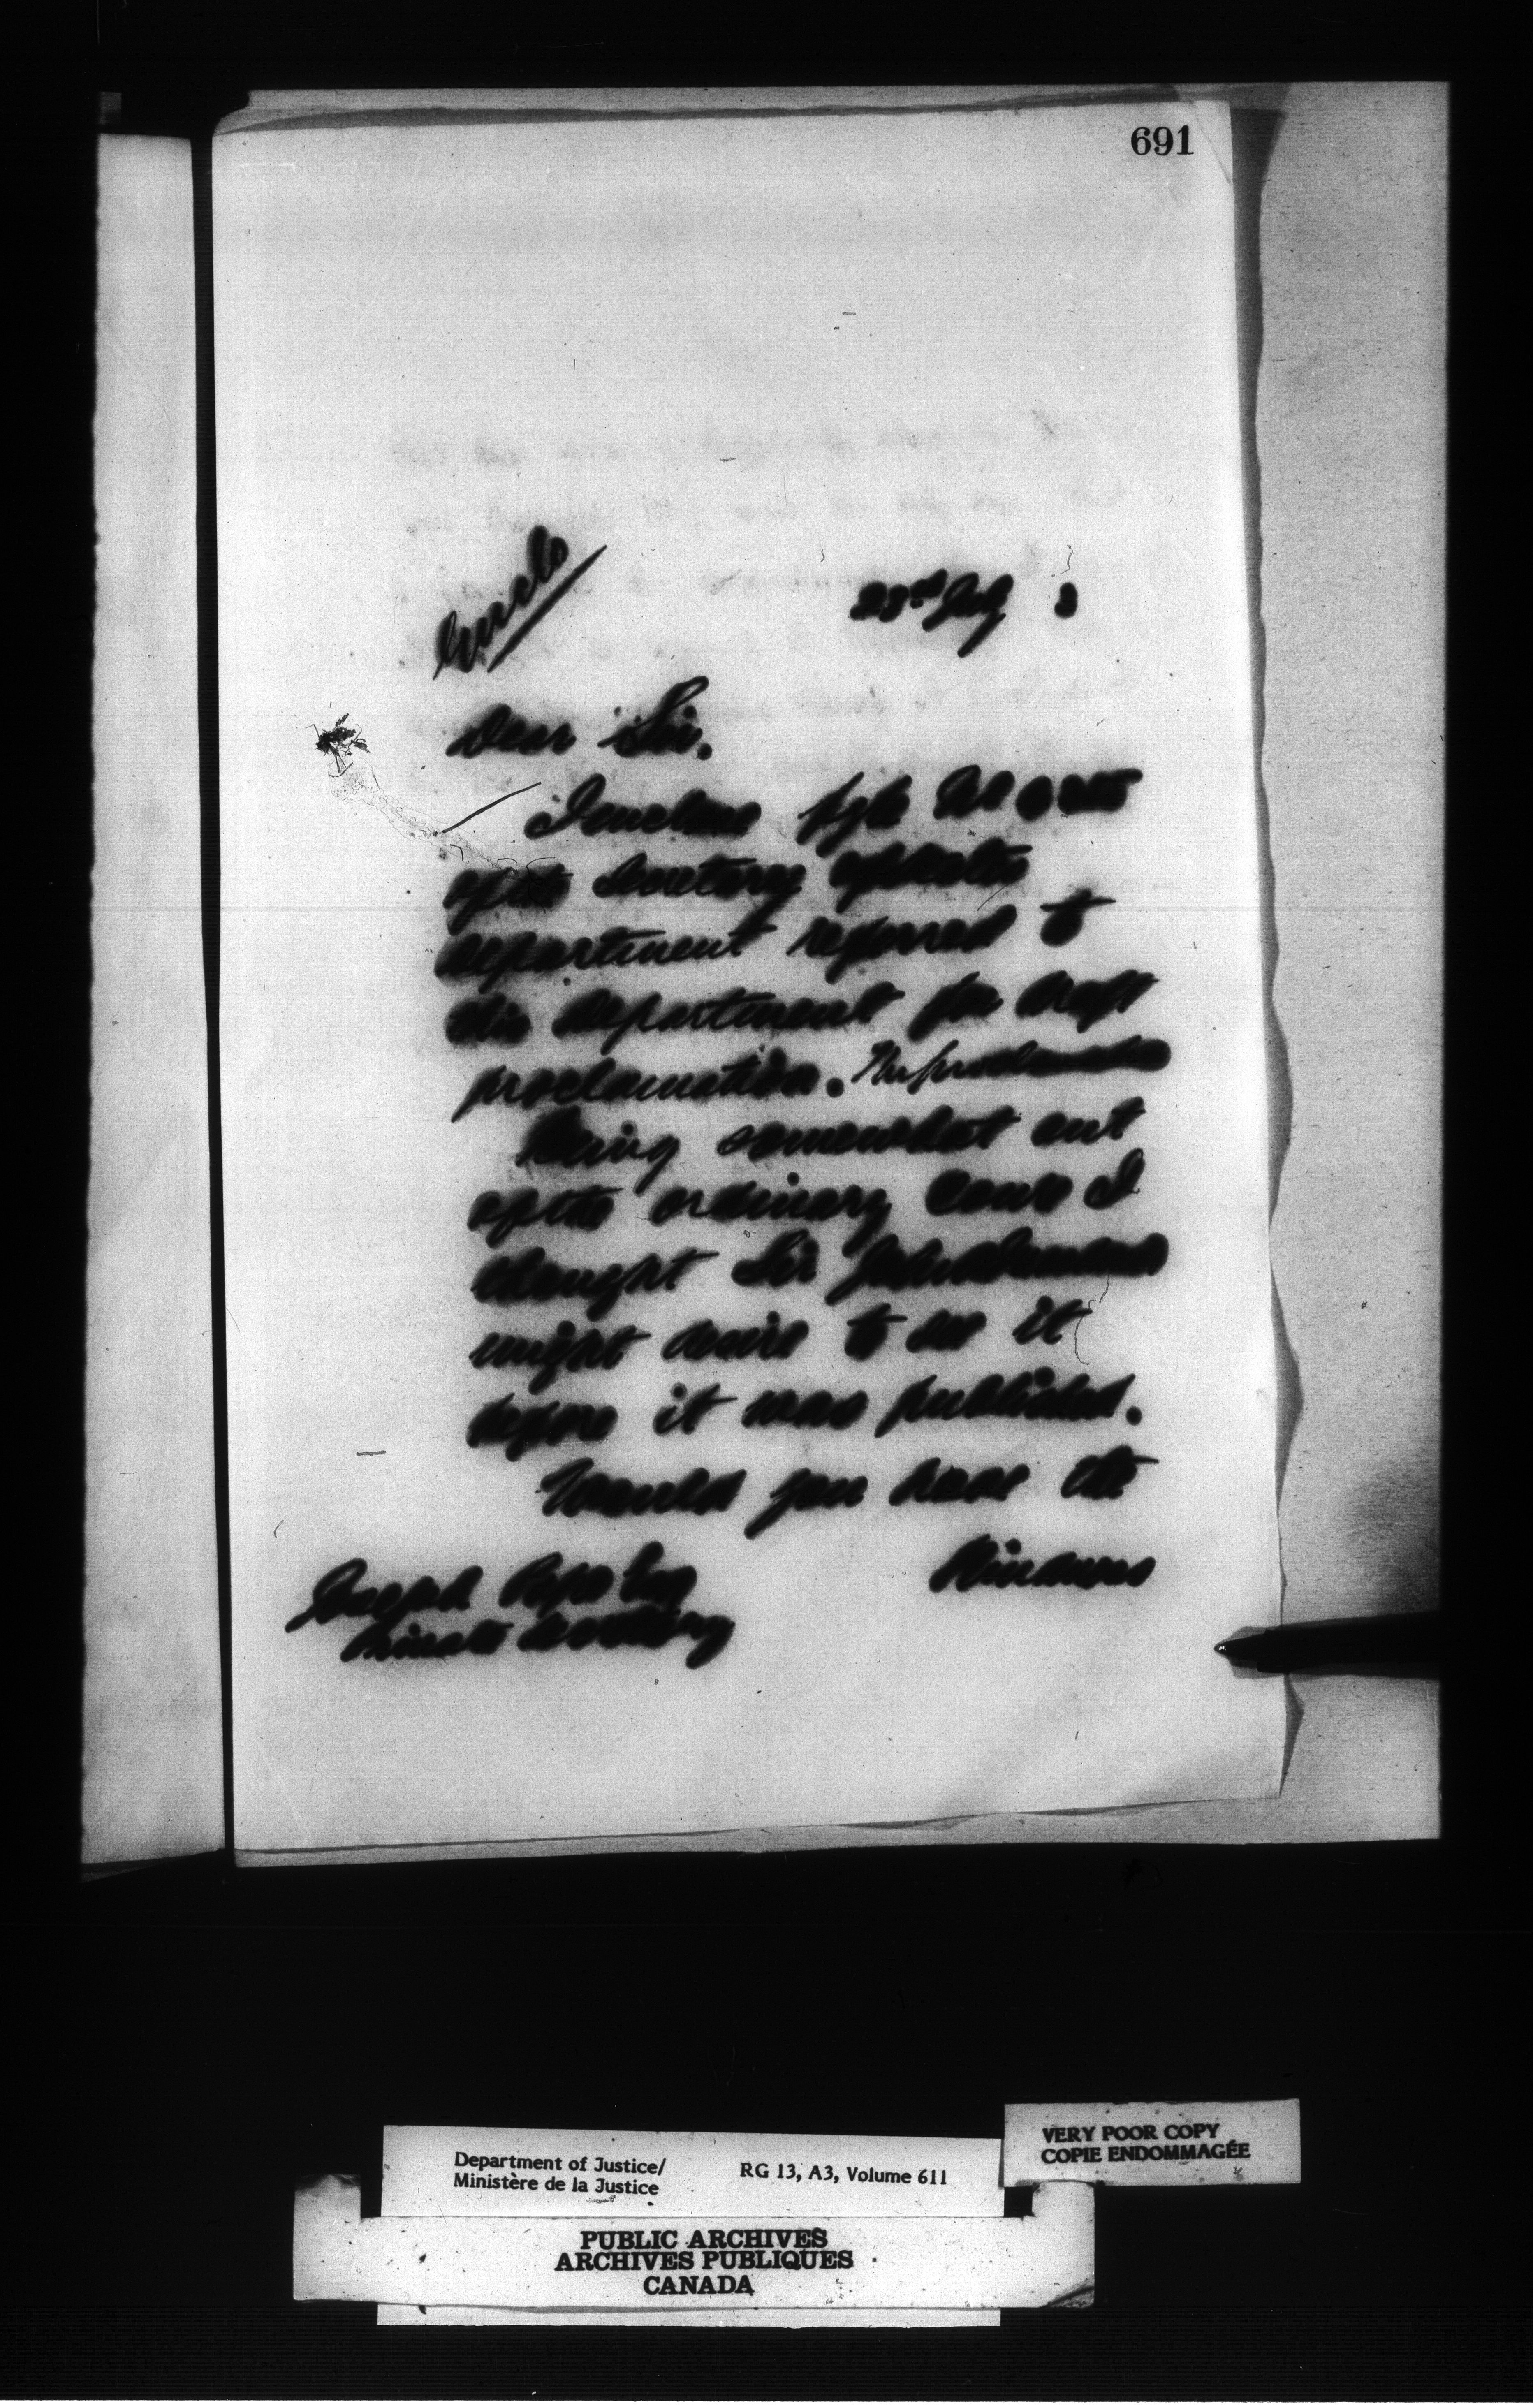 691
Enclo
23rd July 3
Dear Sir.
I enclose file No
of the Secretary of State
department referred to
this department for draft
proclamation. The proclamation
being somewhat out
of the ordinary course I
thought Sir John
might desire to see it
before it was published.
Would you have the
kindness
Joseph Pope Esq
Private Secretary
Department of Justice/
Ministère de la Justice
RG 13, A3, Volume 611
VERY POOR COPY
COPIE ENDOMMAGÉE
PUBLIC ARCHIVES
ARCHIVES PUBLIQUES
CANADA